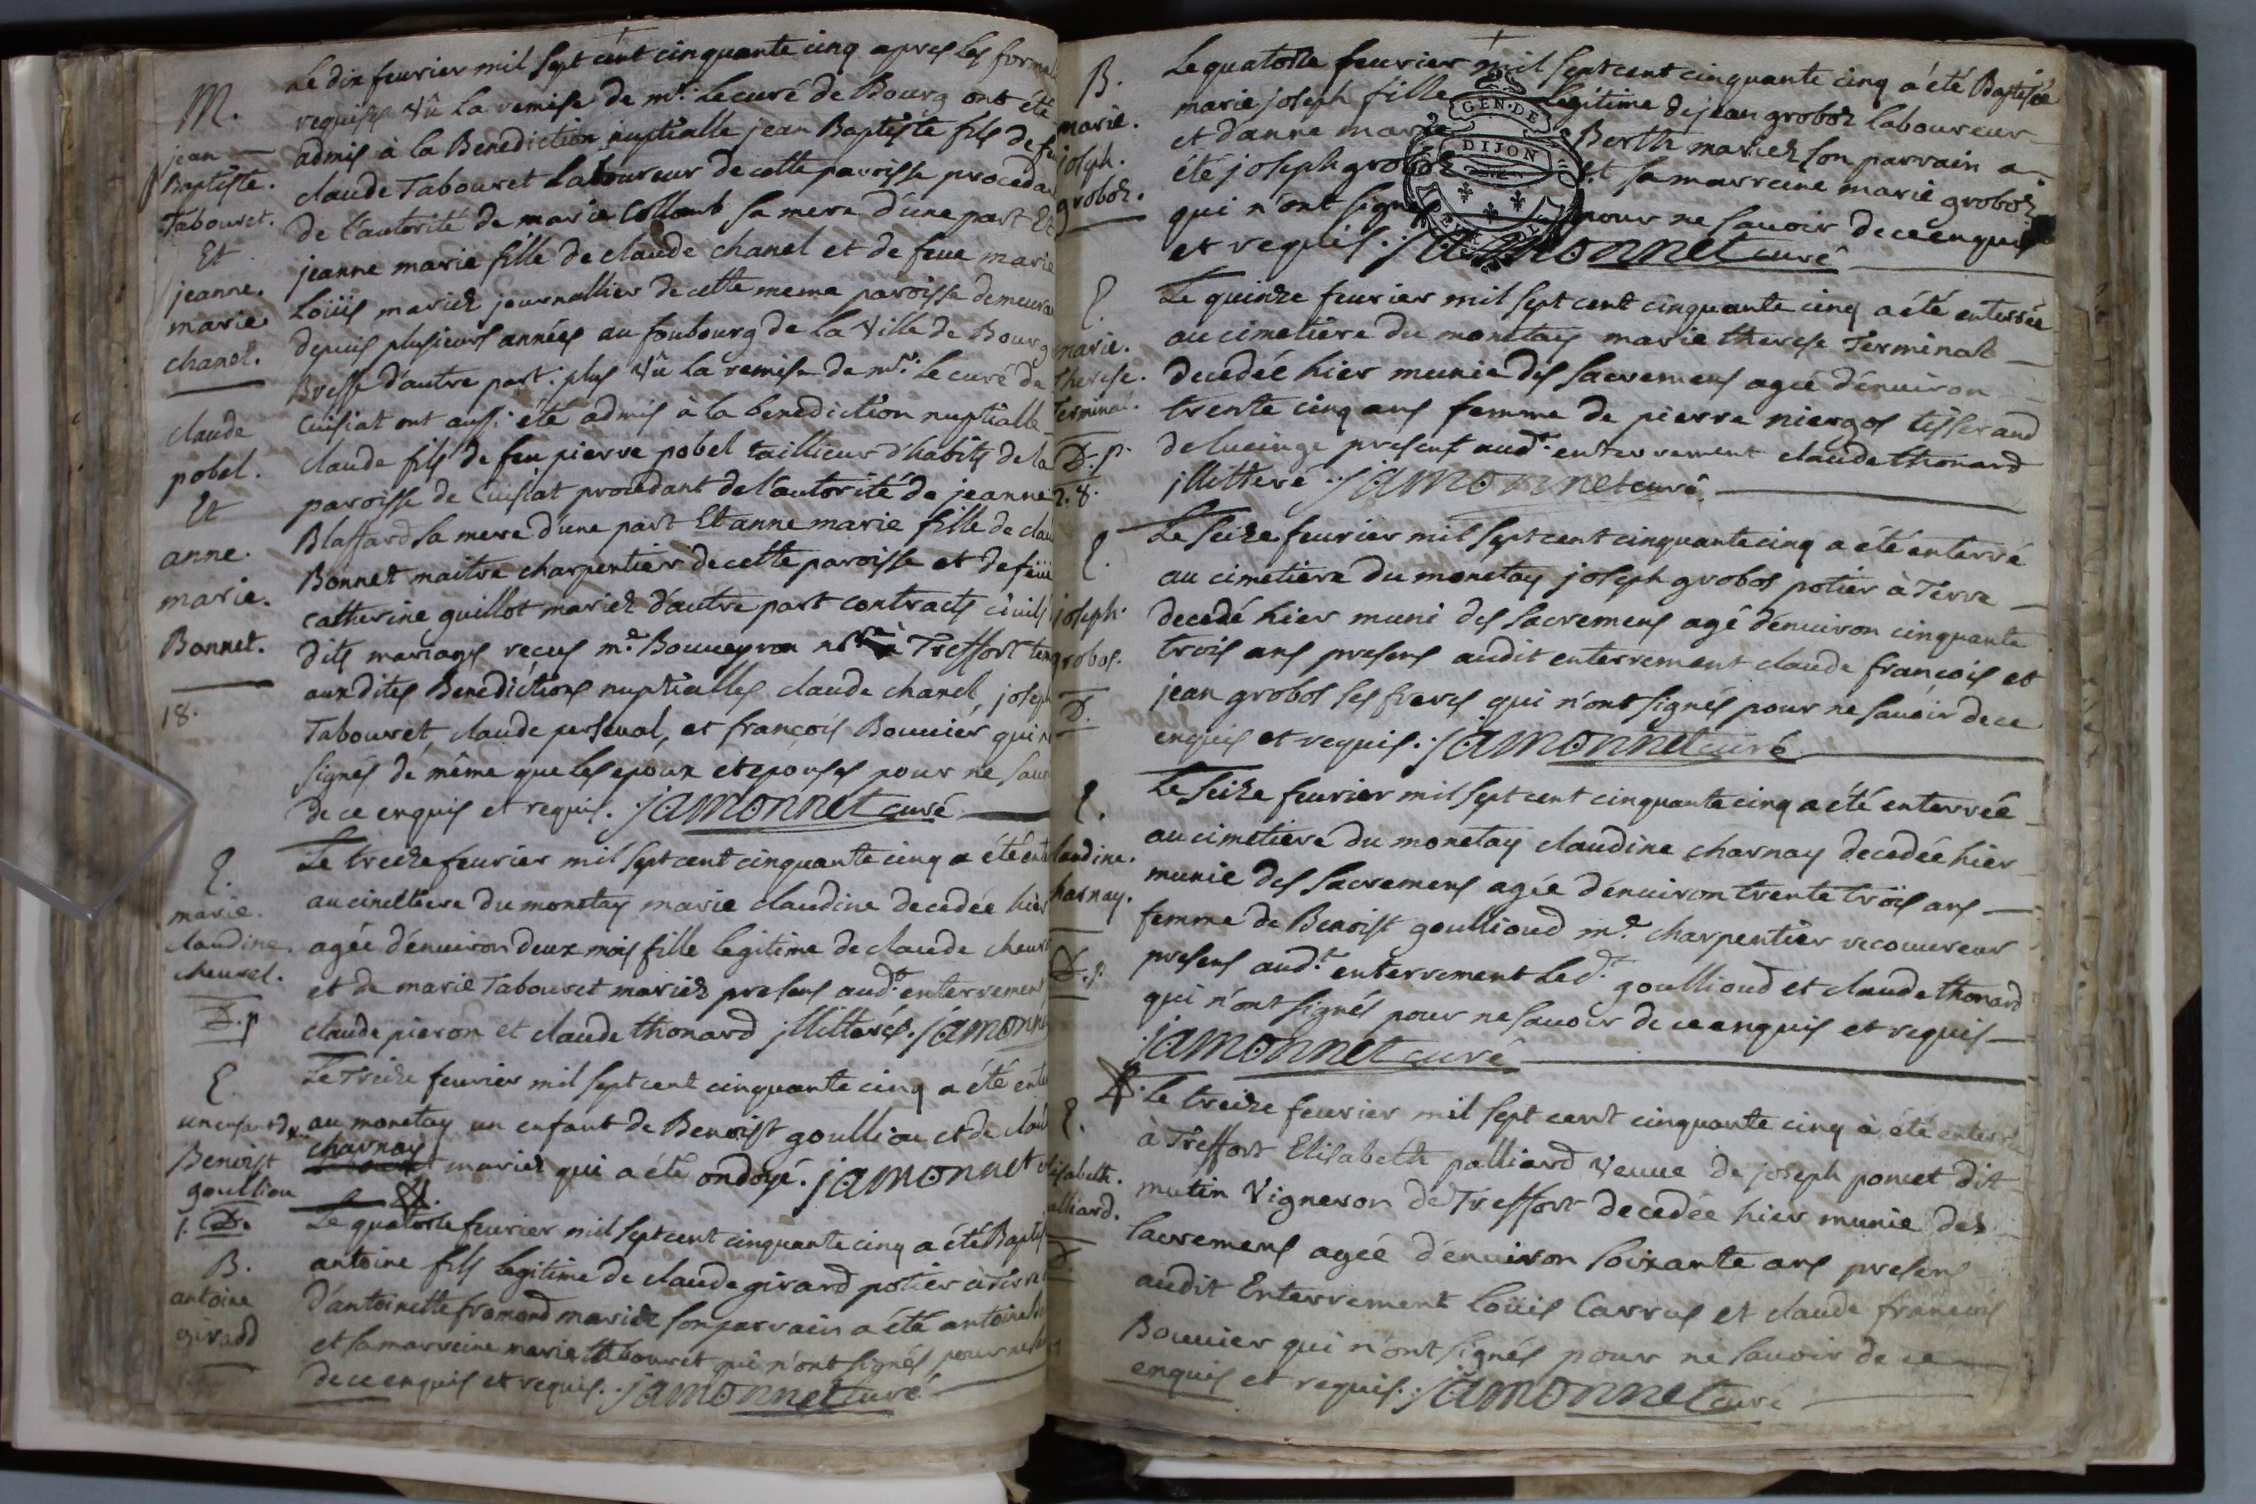 M.
jean
Baptiste.
Tabouret.
Et
jeanne.
marie
chanel.
claude
pobel.
Et
anne.
marie.
Bonnet.
18.
Le dix feurier mil sept cent cinquante cinq apres les
requises vû la remise de mr. le curé de Bourg ont été
admis à la Benediction nuptialle jean Baptiste fils de
claude Tabouret Laboureur de cette paroisse procedant
de l'autorité de marie Collomb sa mere d'une part Et
jeanne marie fille de claude chanel et de feue marie
Loüis mariez journallier de cette meme paroisse
depuis plusieurs années au foubourg de la ville de Bourg
Bresse d'autre part. plus vû la remise de mr. le curé de
Cuisiat ont aussi été admis à la benediction nuptialle
claude fils de feu pierre pobel taillieur d'habits de la
paroisse de Cuisiat procedant de l'autorité de jeanne
Blassard sa mere d'une part Et anne marie fille de
Bonnet maitre charpentier de cette paroisse et de feüe
catherine guillot mariez d'autre part contracts civils
dits mariages recus me. Bouueyron à Treffort
auxdites Benedictions nuptialles claude chanel, joseph
Tabouret, claude perseual, et françois Bouuier qui
signés de même que les epoux et epouses pour ne
de ce enquis et requis. jamonnet curé
E.
marie.
claudine.
cheurel.
D.p
Le treize feurier mil sept cent cinquante cinq a été
au cimetiere du monetay marie claudine decedée hier
agée d'enuiron deux mois fille legitime de claude
et de marie Tabouret mariez presens audt. enterrement
claude pieron et claude thonard jllitterés. jamonnet
E.
un enfant de
Benoist
goulliou
1. D.
Le Treize feurier mil sept cent cinquante cinq a été
au monetay un enfant de Benoist goulliou et de
charnay
mariez qui a été ondoyé. jamonnet
B.
antoine
girard
Le quatorze feurier mil sept cent cinquante cinq a été
antoine fils legitime de claude girard potier à
d'antoinette fromond mariez son parrain a été antoine
et sa marreine marie tabouret qui n'ont signés pour
de ce enquis et requis. jamonnet curé
B.
marie.
joseph.
groboz.
Le quatorze feurier mil sept cent cinquante cinq a été Baptisée
marie joseph fille legitime de jean groboz laboureur
et d'anne marie Berth mariez son parrain a
été joseph groboz Et sa marreine marie groboz
qui n'ont signés pour ne sauoir de ce enquis
et requis. jamonnet curé
GEN. DE
DIJON
E.
marie.
therese.
Terminal.
D.p.
2.8.
Le quinze feurier mil sept cent cinquante cinq a été enterrée
au cimetiere du monetay marie therese Terminal
decedée hier munie des sacremens agée d'enuiron
trente cinq ans femme de pierre niergos tisserand
de lucinge present audt. enterrement claude thonard
jllitteré. jamonnet curé.
E.
joseph.
grobos.
D.
Le seize feurier mil sept cent cinquante cinq a été enterré
au cimetiere du monetay joseph grobos potier à Terre
decedé hier muni des sacremens agé d'enuiron cinquante
trois ans presens audit enterrement claude francois et
jean grobos ses freres qui n'ont signés pour ne sauoir de ce
enquis et requis. jamonnet curé
E.
laudine.
harnay.
D.p.
Le seize feurier mil sept cent cinquante cinq a été enterrée
au cimetiere du monetay claudine charnay decedée hier
munie des sacremens agée d'enuiron trente trois ans
femme de Benoist goullioud me. charpentier recouureur
presens audt. enterrement le dt. goullioud et claude thonard
qui n'ont signés pour ne sauoir de ce enquis et requis
jamonnet curé
E.
lisabeth.
alliard.
D
Le treize feurier mil sept cent cinquante cinq à été enterrée
à Treffort Elisabeth palliard veuue de joseph poncet dit
mutin vigneron de Treffort decedée hier munie des
sacremens ageé d'enuiron soixante ans presens
audit Enterrement Loüis Carrus et claude francois
Bouuier qui n'ont signés pour ne sauoir de ce
enquis et requis. jamonnet curé